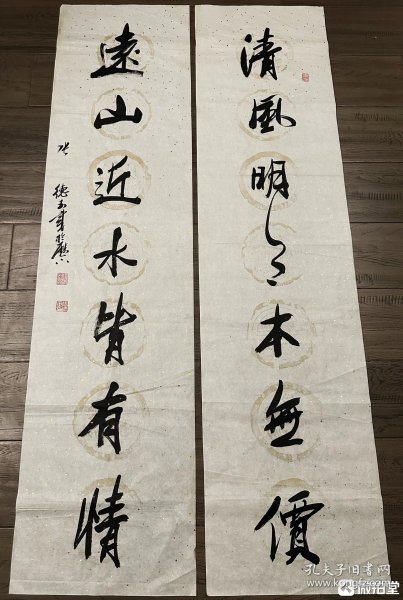 清風明月本無價
遠山近水皆有情
孔夫子旧书网
微拍堂